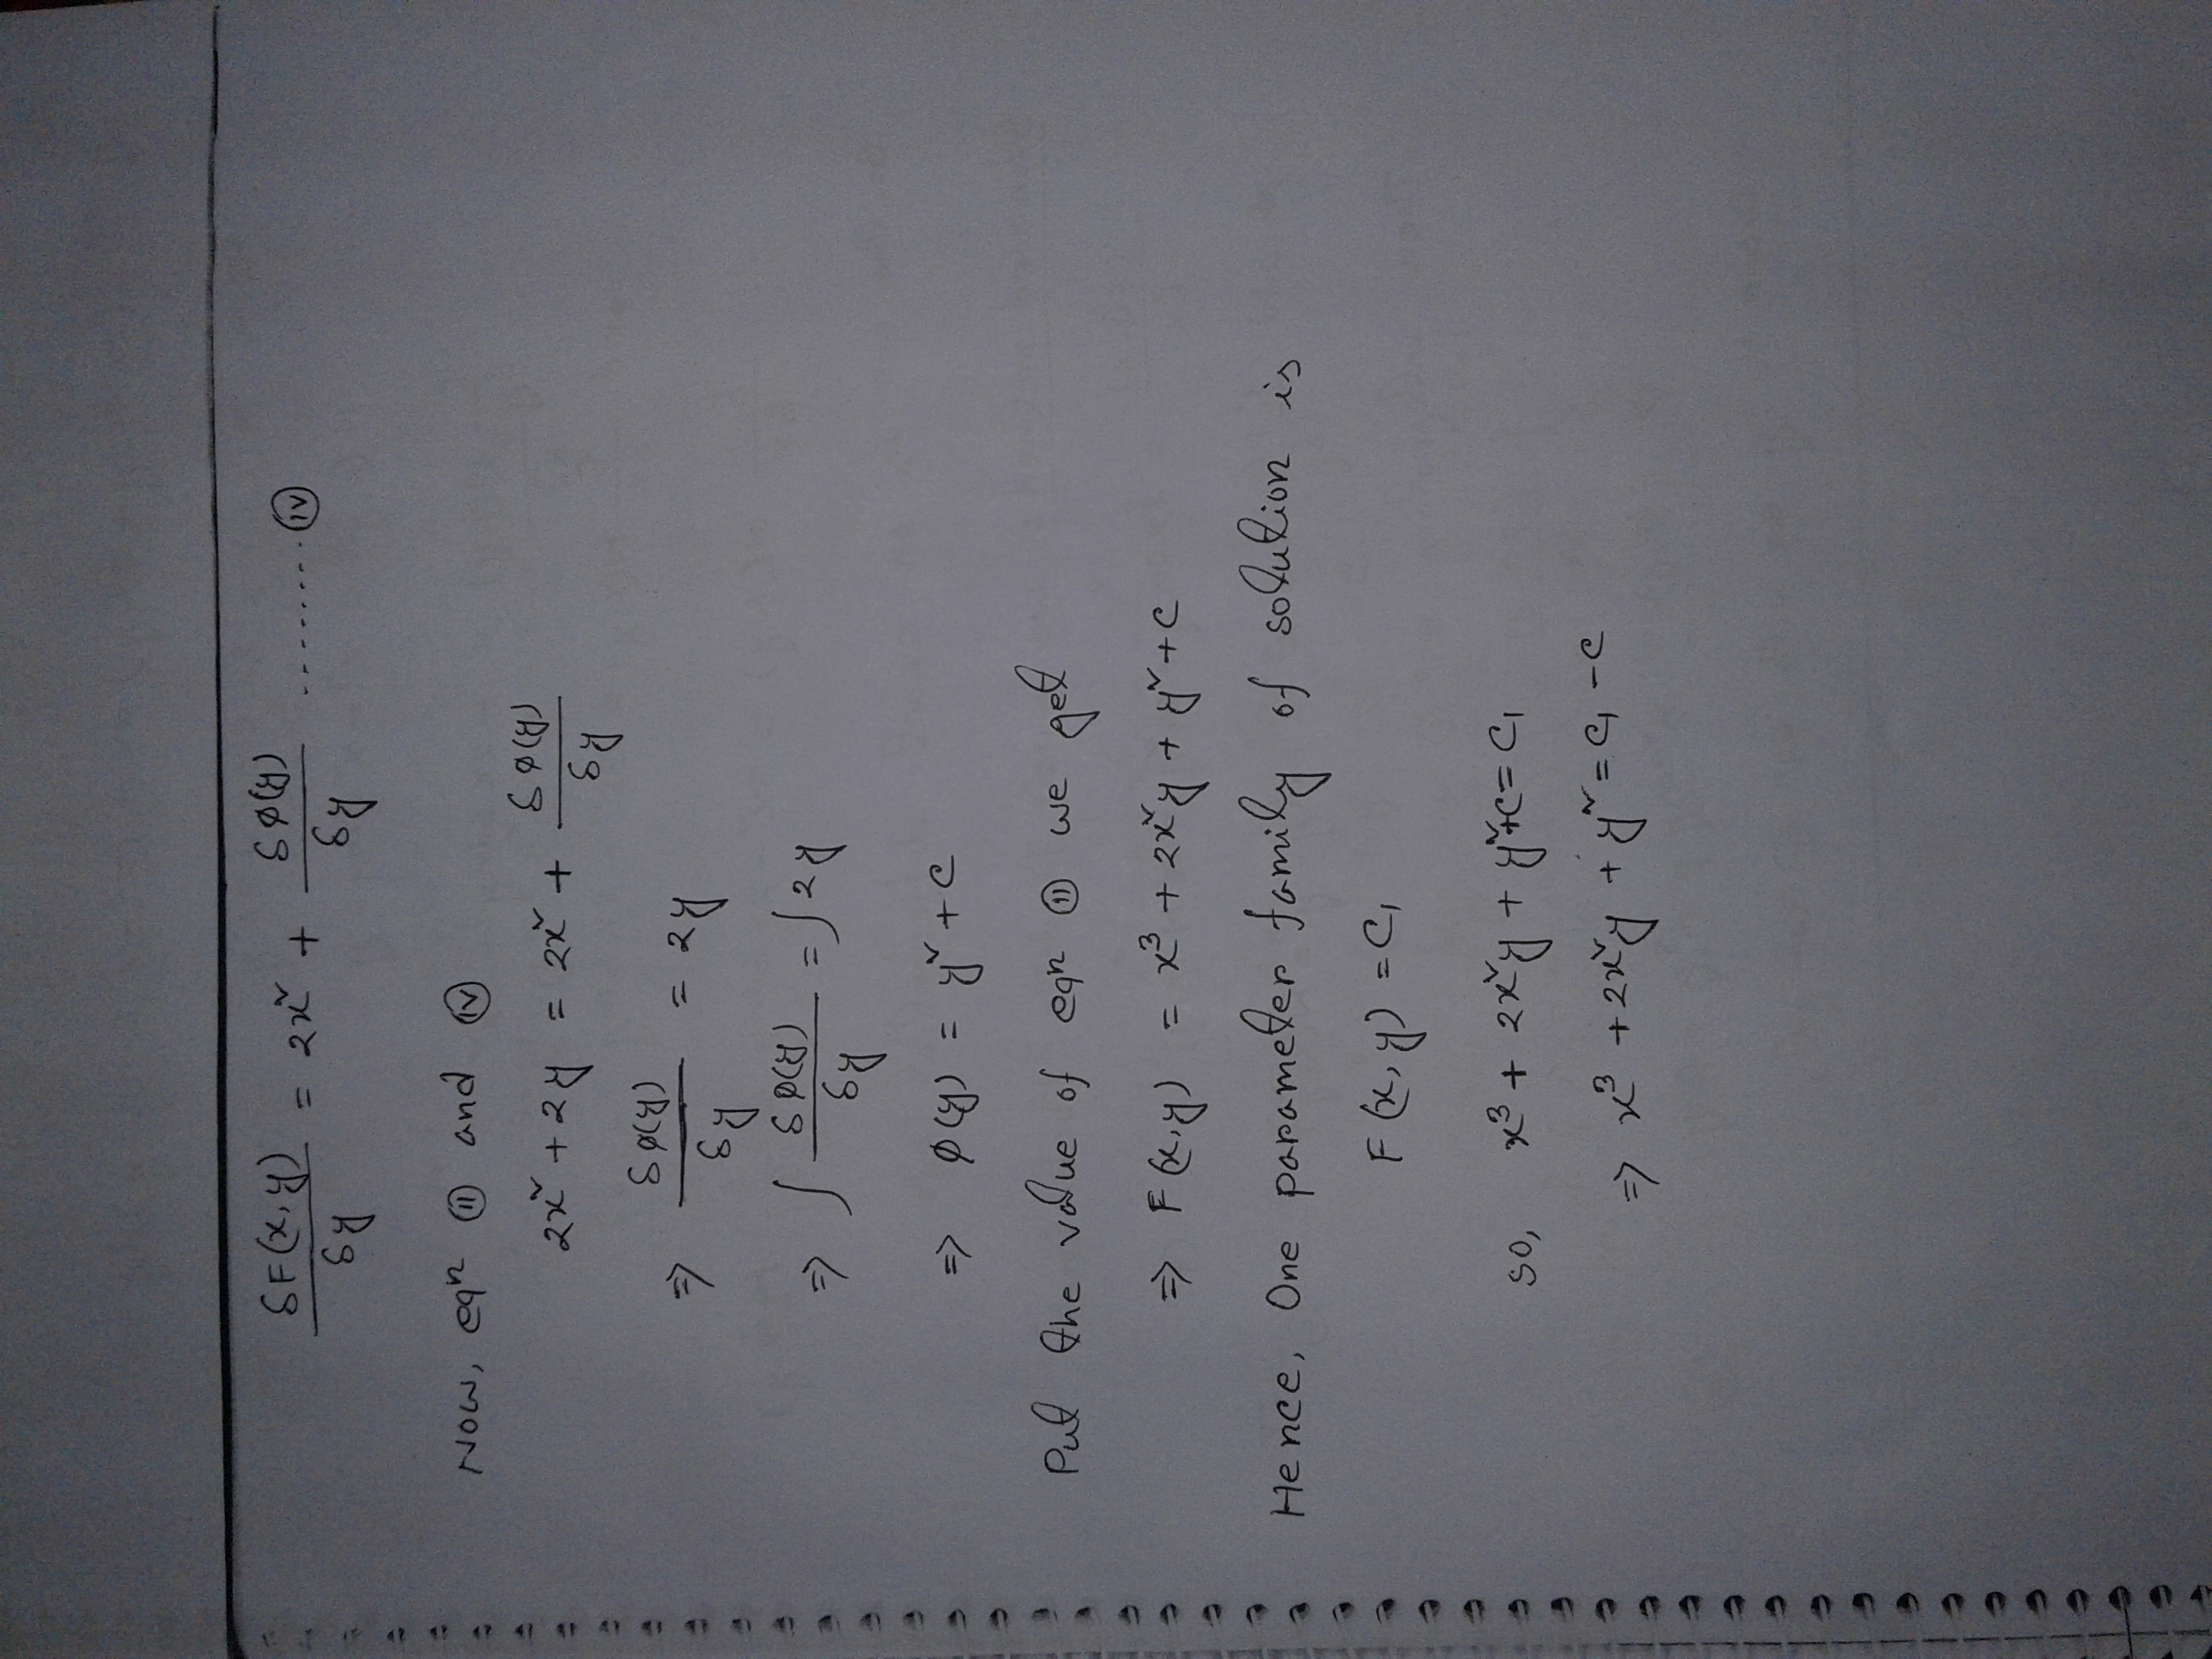 δF(x,y)/δy = 2x² + δφ(y)/δy ......... (iv)
Now, eqn (ii) and (iv)
2x² + 2y = 2x² + δφ(y)/δy
⇒ δφ(y)/δy = 2y
⇒ ∫ δφ(y)/δy = ∫2y
⇒ φ(y) = y² + c
Put the value of eqn (ii) we get
⇒ F(x,y) = x³ + 2x²y + y² + c
Hence, One parameter family of solution is
F(x,y) = c₁
so, x³ + 2x²y + y² + c = c₁
⇒ x³ + 2x²y + y² = c₁ - c